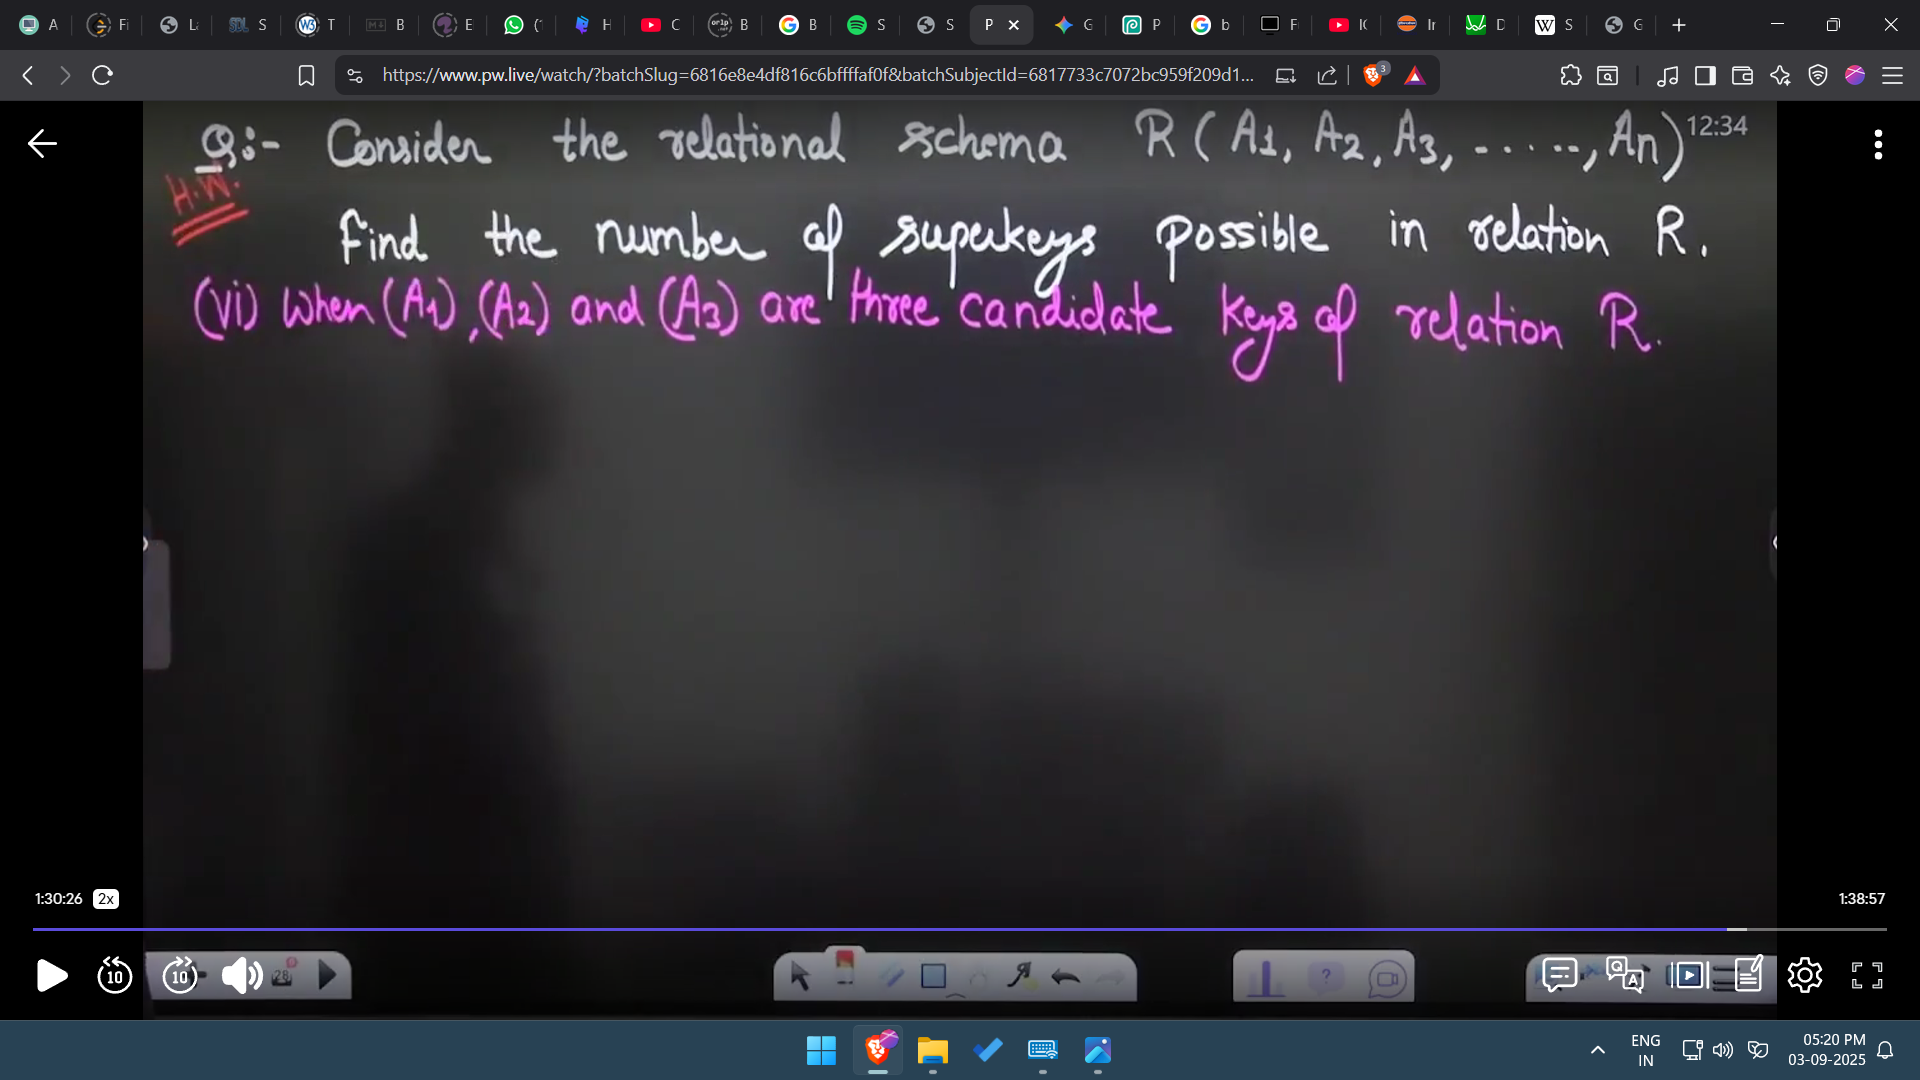 A
Fi
La
SQL S
W3 T
B
E
(1
H
C
orlp .net B
B
S
S
P
G
P
b
F
IC
Ir
D
W S
G
https://www.pw.live/watch/?batchSlug=6816e8e4df816c6bffffaf0f&batchSubjectId=6817733c7072bc959f209d1...
3
Q:- Consider the relational schema R(A1, A2, A3, ......, An)
12:34
H.W.
Find the number of superkeys possible in relation R.
(vi) when (A1), (A2) and (A3) are three candidate keys of relation R.
1:30:26 2x
1:38:57
10
10
28
?
Q A
ENG
IN
05:20 PM
03-09-2025